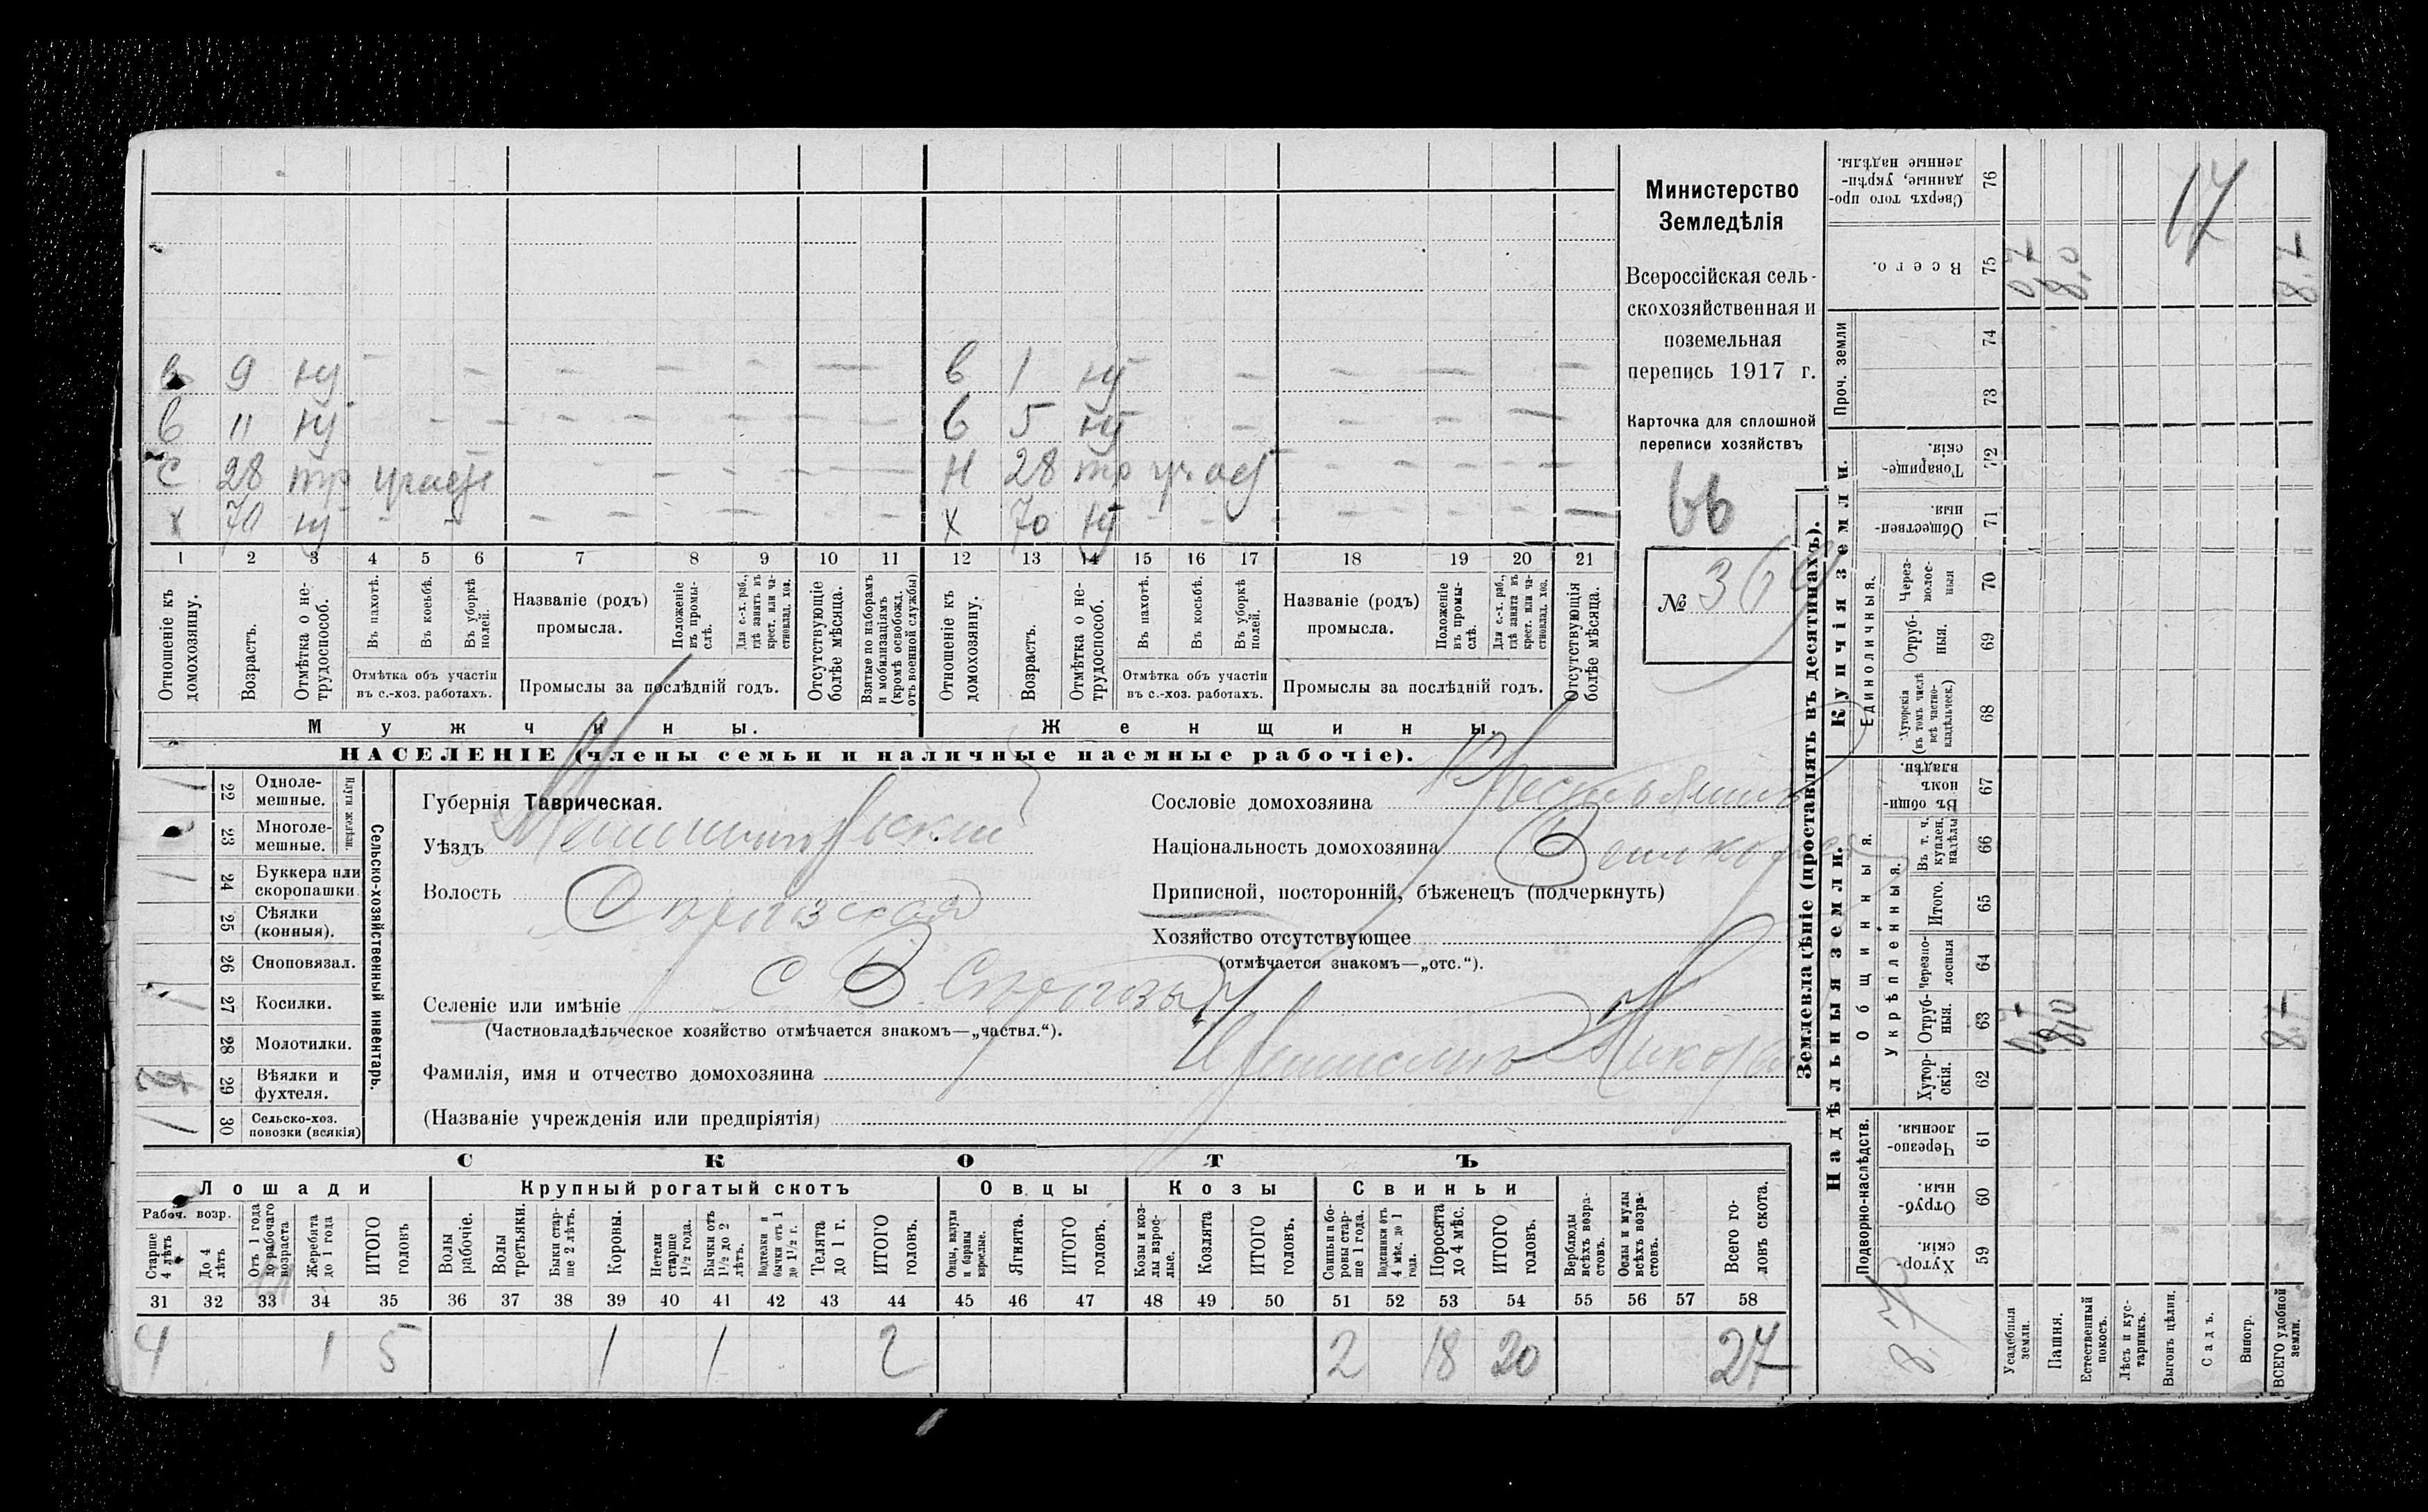 в 9 ну — — — — — в 1 ну — — — —
в 11 ну — — — — — — — в 5 ну — — — —
с 28 тр участ — — — — — н 28 тр участ — — — —
х 70 ну — — — — — — х 70 ну — — — — — —
1 2 3 4 5 6 7 8 9 10 11 12 13 14 15 16 17 18 19 20 21
Отношеніе къ домохозяину.
Возрастъ.
Отмѣтка о не-трудоспособ.
Въ пахотѣ.
Въ косьбѣ.
Въ уборкѣ полей.
Отмѣтка объ участіи
въ с.-хоз. работахъ.
Названіе (родъ)
промысла.
Положеніе въ промы-слѣ.
Для с.-х. раб., гдѣ занятъ въ крест. или ча-стновлад. хоз.
Промыслы за послѣдній годъ.
Отсутствующіе болѣе мѣсяца.
Взятые по наборамъ и мобилизаціямъ (кромѣ освобожд. отъ военной службы)
Отношеніе къ домохозяину.
Возрастъ.
Отмѣтка о не-трудоспособ.
Въ пахотѣ.
Въ косьбѣ.
Въ уборкѣ полей.
Отмѣтка объ участіи
въ с.-хоз. работахъ.
Названіе (родъ)
промысла.
Положеніе въ промы-слѣ.
Для с.-х. раб., гдѣ занята въ крест. или ча-стновлад. хоз.
Промыслы за послѣдній годъ.
Отсутствующія болѣе мѣсяца.
Мужчины.
Женщины.
НАСЕЛЕНІЕ (члены семьи и наличные наемные рабочіе).
Министерство
Земледѣлія
Всероссійская сель-
скохозяйственная и
поземельная
перепись 1917 г.
Карточка для сплошной
переписи хозяйствъ
66
№ 369
Сельско-хозяйственный инвентарь.
Плуги желѣзн.
1 22 Одноле-мешные.
23 Многоле-мешные.
1 24 Буккера или скоропашки
25 Сѣялки (конныя).
26 Сноповязал.
1 27 Косилки.
28 Молотилки.
29 Вѣялки и фухтеля.
1 30 Сельско-хоз. повозки (всякія)
Губернія Таврическая.
Уѣздъ Мелитопольскій
Волость
Селеніе или имѣніе с В.
(Частновладѣльческое хозяйство отмѣчается знакомъ—„частвл.“).
Фамилія, имя и отчество домохозяина
(Названіе учрежденія или предпріятія)
Сословіе домохозяина Крестьянинъ
Національность домохозяина Великоросс
Приписной, посторонній, бѣженецъ (подчеркнуть)
Хозяйство отсутствующее
(отмѣчается знакомъ—„отс.“).
СКОТЪ
Лошади Крупный рогатый скотъ Овцы Козы Свиньи
Рабоч. возр.
Старше 4 лѣтъ
До 4 лѣтъ
Отъ 1 года до рабочаго возраста
Жеребята до 1 года
ИТОГО головъ
Волы рабочіе.
Волы третьяки.
Быки стар-ше 2 лѣтъ.
Коровы.
Нетели старше 1½ года.
Бычки отъ 1½ до 2 лѣтъ.
Подтелки и бычки отъ 1 до 1½ г.
Телята до 1 г.
ИТОГО головъ.
Овцы, валухи и бараны взрослые.
Ягнята.
ИТОГО головъ.
Козы и коз-лы взрос-лые.
Козлята
ИТОГО головъ.
Свиньи и бо-ровы стар-ше 1 года.
Подсвинки отъ 4 мѣс. до 1 года.
Поросята до 4 мѣс.
ИТОГО головъ.
Верблюды всѣхъ возра-стовъ.
Ослы и мулы всѣхъ возра-стовъ.
Всего го-ловъ скота.
31 32 33 34 35 36 37 38 39 40 41 42 43 44 45 46 47 48 49 50 51 52 53 54 55 56 57 58
4 1 5 1 1 2 2 18 20 27
Землевладѣніе (проставлять въ десятинахъ).
Надѣльныя земли.
Купчія земли.
Проч. земли
Подворно-наслѣдств.
Общинныя.
Укрѣпленныя.
Единоличныя.
Сверхъ того про-данные, укрѣп-ленные надѣлы. 76
Всего. 75 0,7 8,0 8.7
74
73
Товарище-скія. 72
Обществен-ныя. 71
Через-полос-ныя 70
Отруб-ныя. 69
Хуторскія (въ томъ числѣ всѣ частно-владѣльческ.) 68
Въ общи-номъ владѣн. 67
Въ т. ч. куплен. надѣлы 66
Итого. 65
Черезпо-лосныя 64
Отруб-ныя. 63 0,7 8,0 8.7
Хутор-скія. 62
Черезпо-лосныя. 61
Отруб-ныя. 60
Хутор-скія. 59
17
8.7
Усадебныя земли.
Пашня.
Естественный покосъ.
Лѣсъ и кус-тарникъ.
Выгонъ цѣлин.
Садъ.
Виногр.
ВСЕГО удобной земли.